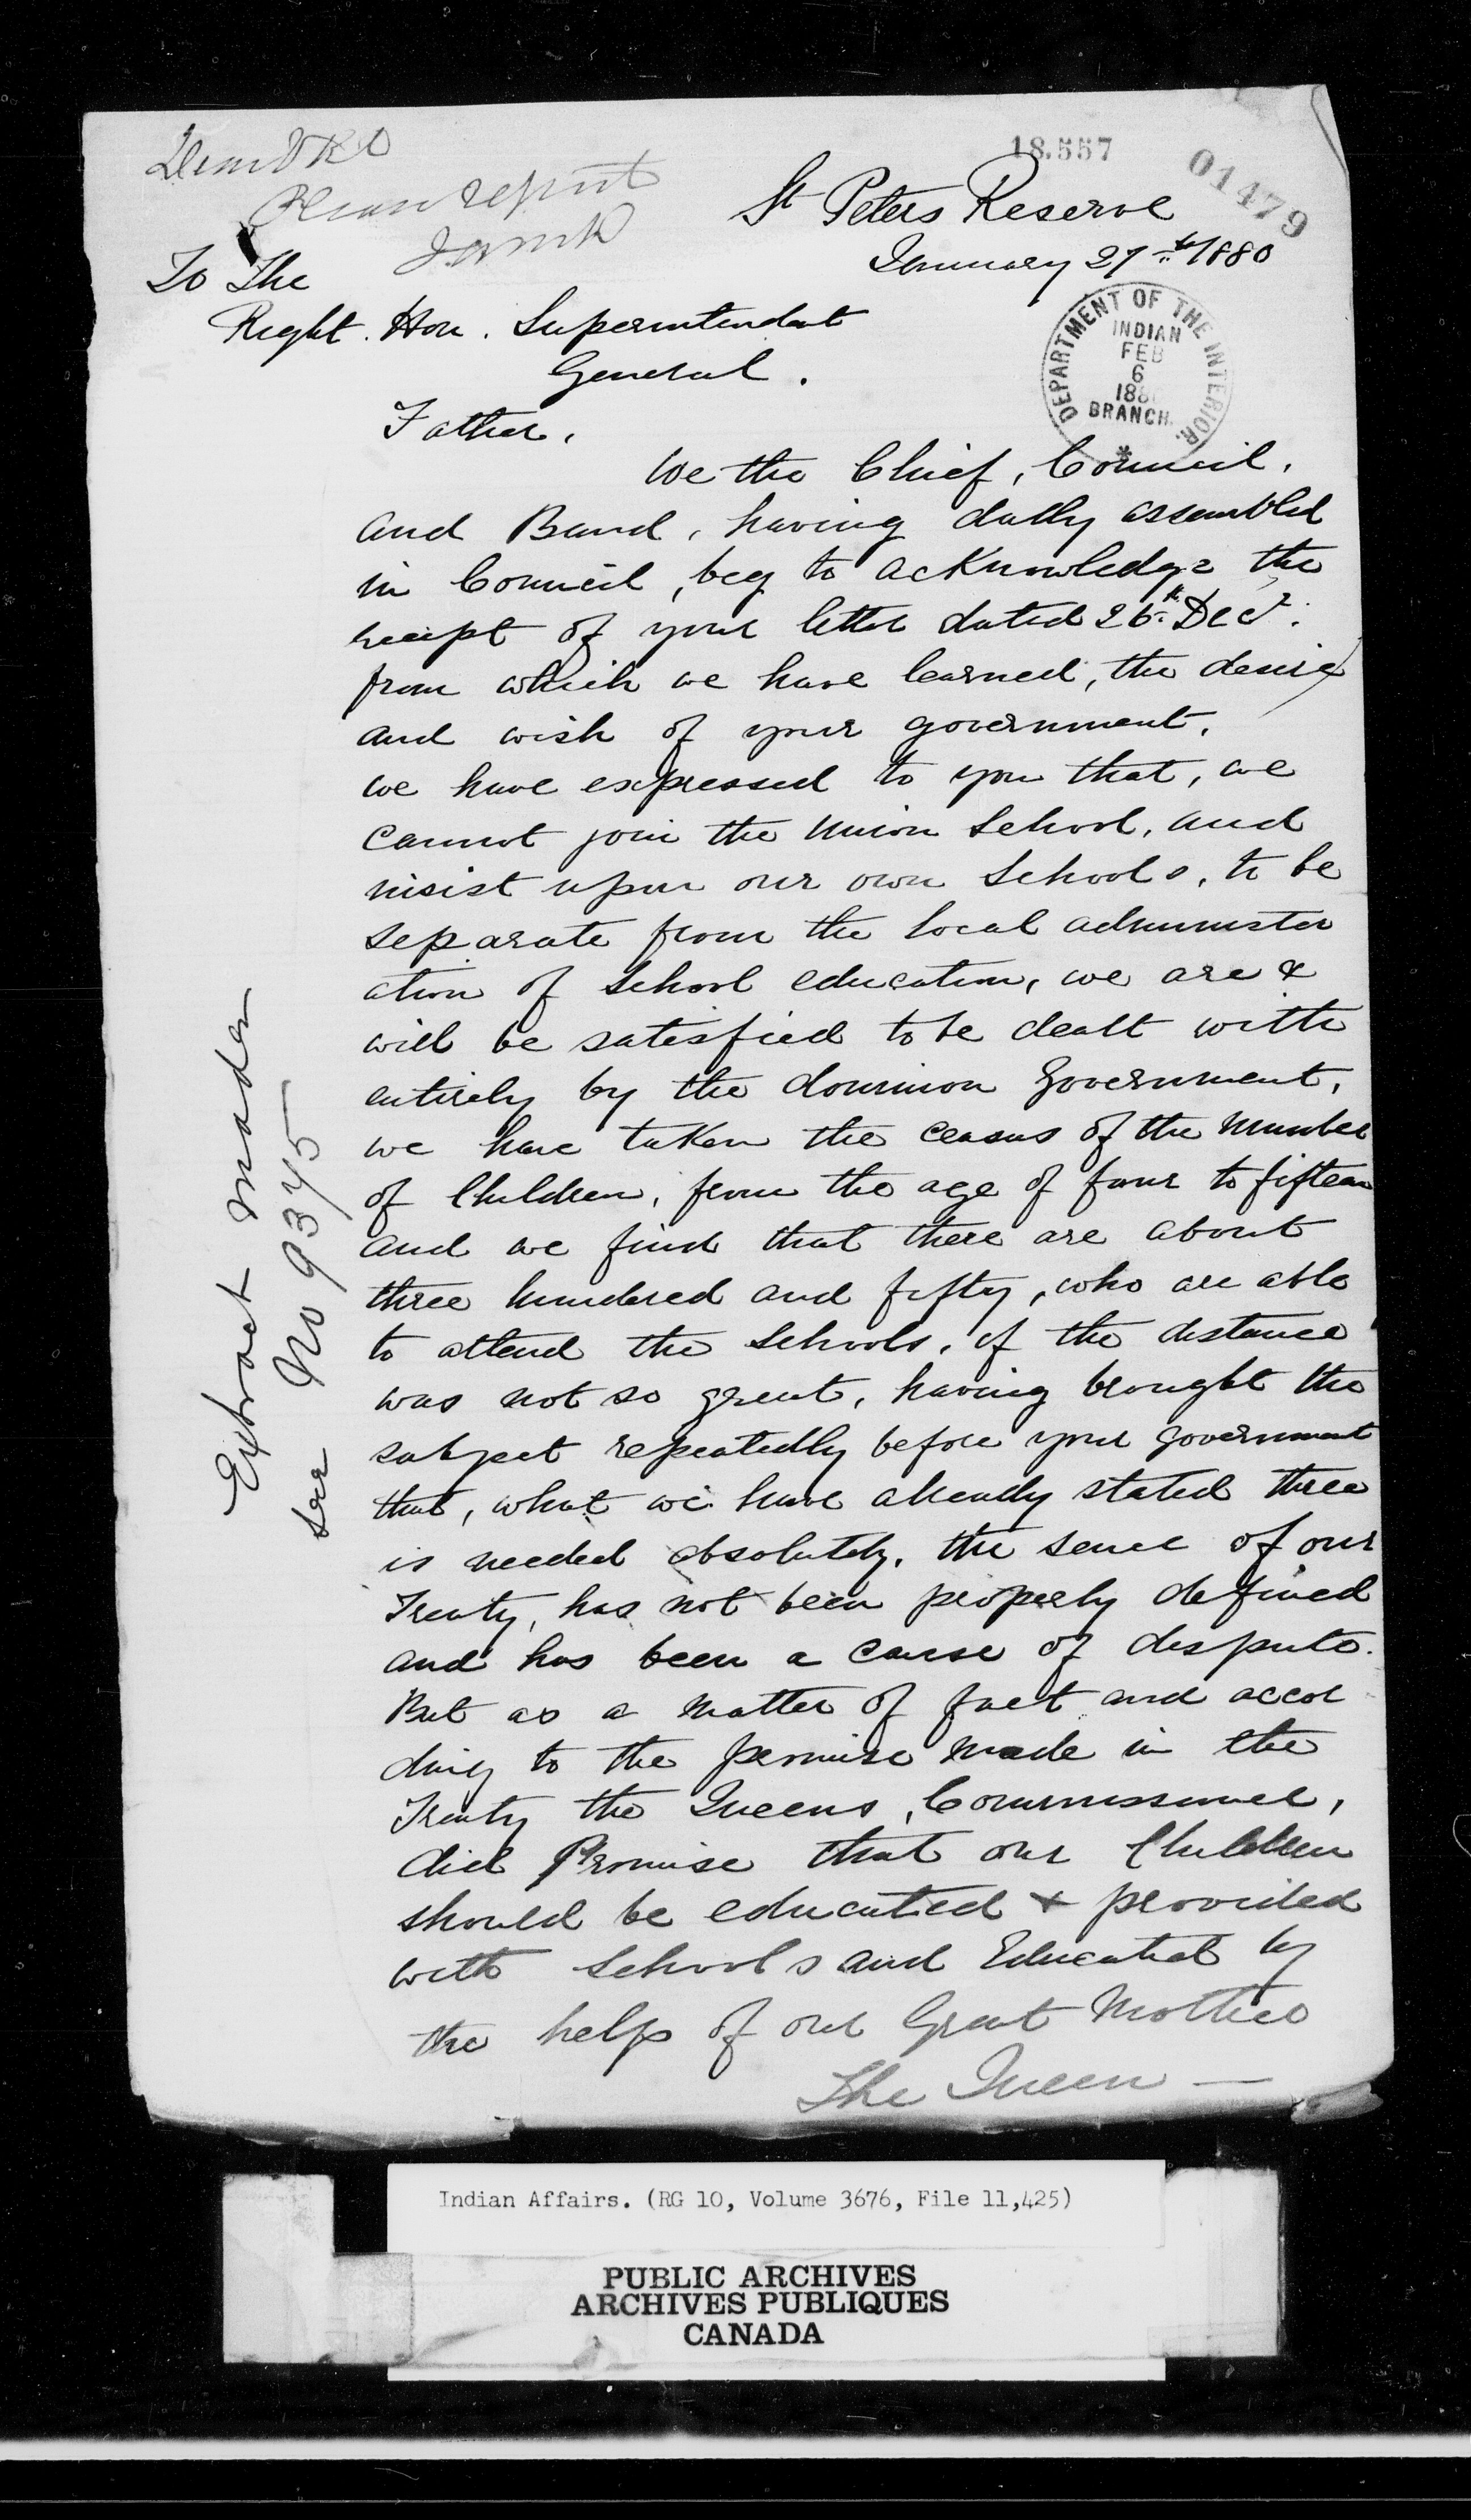 18.557
01479
Please report
St Peters Reserve
January 27th 1880
To The
Right. Hon. Superintendent
General.
DEPARTMENT OF THE INTERIOR.
INDIAN
FEB
6
188
BRANCH.
*
Father,
We the Chief, Council,
and Band, having dully assembled
in Council, beg to acknowledge the
receipt of your letter dated 26th Decr.
from which we have learned, the desire
and wish of your government.
we have expressed to you that, we
cannot join the Union School, and
insist upon our own Schools, to be
separate from the local administer
ation of School education, we are &
will be satisfied to be dealt with
entirely by the dominion Government,
we have taken the census of the number
of Children, from the age of four to fifteen
and we find that there are about
three hundered and fifty, who are able
to attend the Schools, if the distance
was not so great, having brought the
subject repeatedly before your government
that, what we have already stated three
is needed absolutely, the sense of our
Treaty, has not been properly defined
and has been a cause of dispute.
But as a matter of fact and accor
ding to the promise made in the
Treaty the Queens, Commissioner,
did Promise that our Children
should be educated & provided
with Schools and Educated by
the help of our Great Mother
The Queen —
Extract made
see No 9375
Indian Affairs. (RG 10, Volume 3676, File 11,425)
PUBLIC ARCHIVES
ARCHIVES PUBLIQUES
CANADA